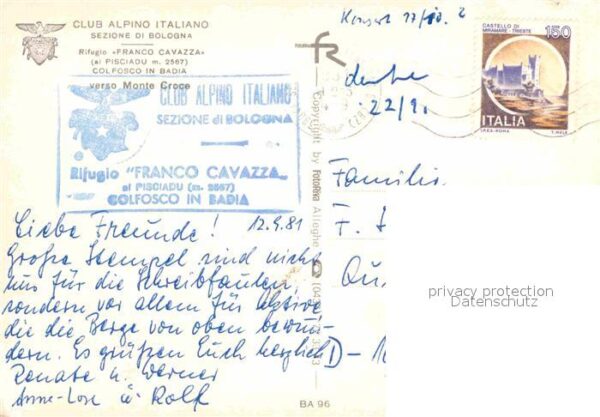 CLUB ALPINO ITALIANO
SEZIONE DI BOLOGNA
Rifugio «FRANCO CAVAZZA»
(al PISCIADU m. 2567)
COLFOSCO IN BADIA
verso Monte Croce
CLUB ALPINO ITALIANO
SEZIONE di BOLOGNA
Rifugio "FRANCO CAVAZZA"
al PISCIADU (m. 2567)
COLFOSCO IN BADIA
Liebe Freunde! 12.9.81
Große Stempel sind nicht
nur für die Schreibfaulen,
sondern vor allem für aktive
die die Berge von oben bewun-
dern. Es grüßen Euch herzlich
Renate u. Werner
Anne-Lore u. Rolf
fR
Copyright by FotoRiva Alleghe
BA 96
CASTELLO DI
MIRAMARE - TRIESTE
150
ITALIA
22/9.
Familie
F.
D-
privacy protection
Datenschutz